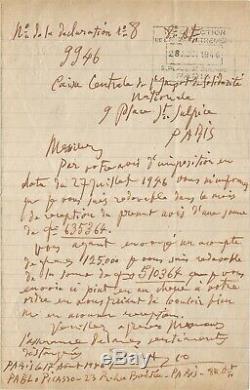 No de la declaration No 8
9946
Caisse Centrale de l'Impot de Solidarité
Nationale
9 Place St. Sulpice
PARIS
Messieurs
Par votre avis d'imposition en
date du 27 Juillet 1946 vous m'informez
que je vous suis redevable dans le mois
de reception du present avis d'une somme
de 635364
Vous ayant envoyé un acompte
de 125000 je vous suis redevable
de la somme de 510364 que je vous
envoie ci joint en un cheque à votre
ordre en vous priant de vouloir bien
m'en accuser reception.
Veuillez agreer Messieurs
l'assurance de mes sentiments
distingués
PARIS le Août 1946
PABLO Picasso - 23 Rue La Boëtie - PARIS - 8